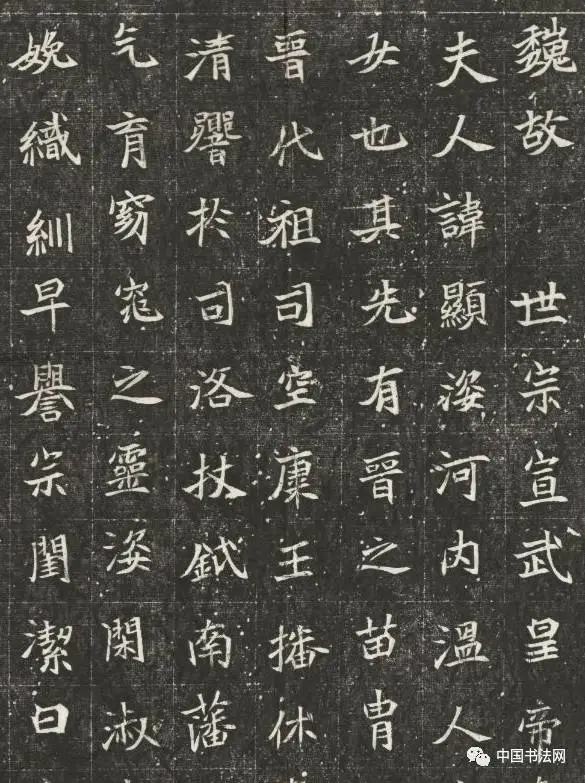 魏故 世宗宣武皇帝
夫人諱顯姿河内溫人
女也其先有晉之苗胄
晉代祖司空康王播休
清響於司洛杖鉞南藩
气育窈窕之靈姿閑淑
娩織紃早譽宗閨潔曰
中国书法网